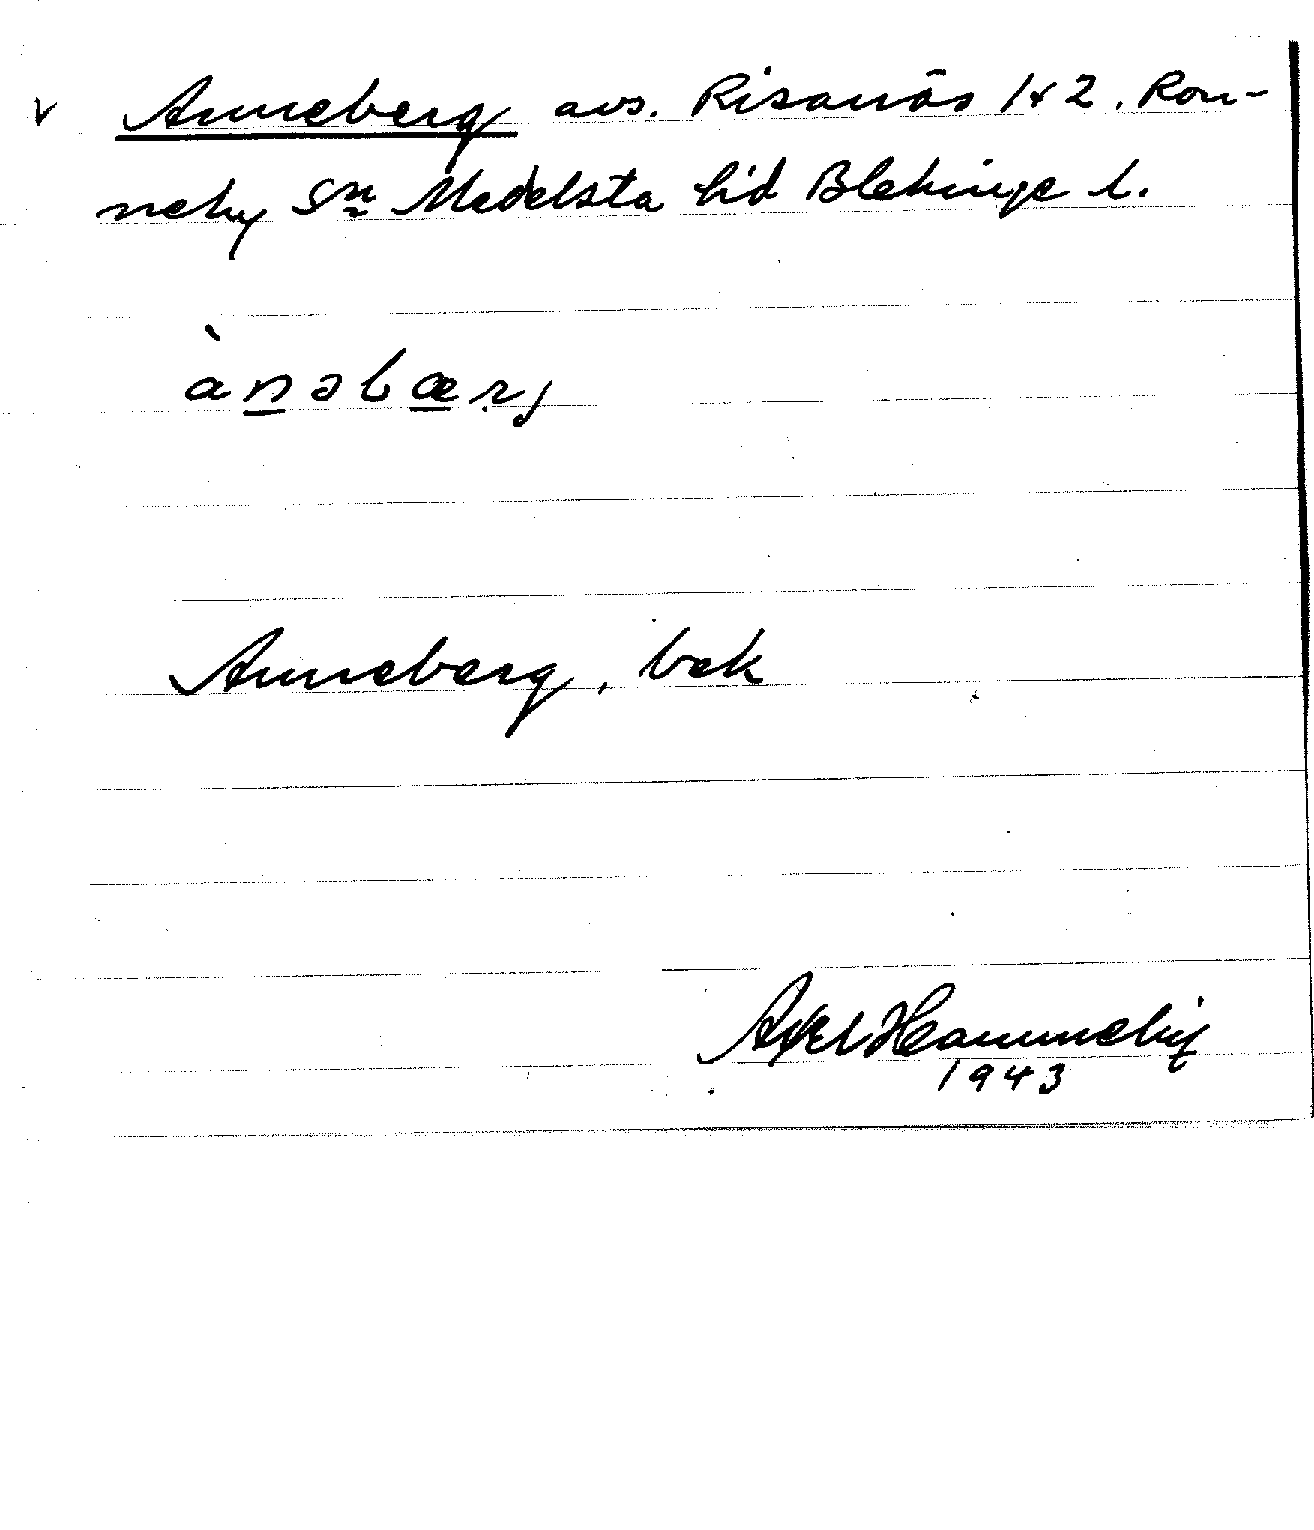 v Anneberg avs. Risanäs 1+2. Ron-
neby Sn Medelsta hd Blekinge l.
ànəbærj
Anneberg, bek
Axel Hammeby
1943